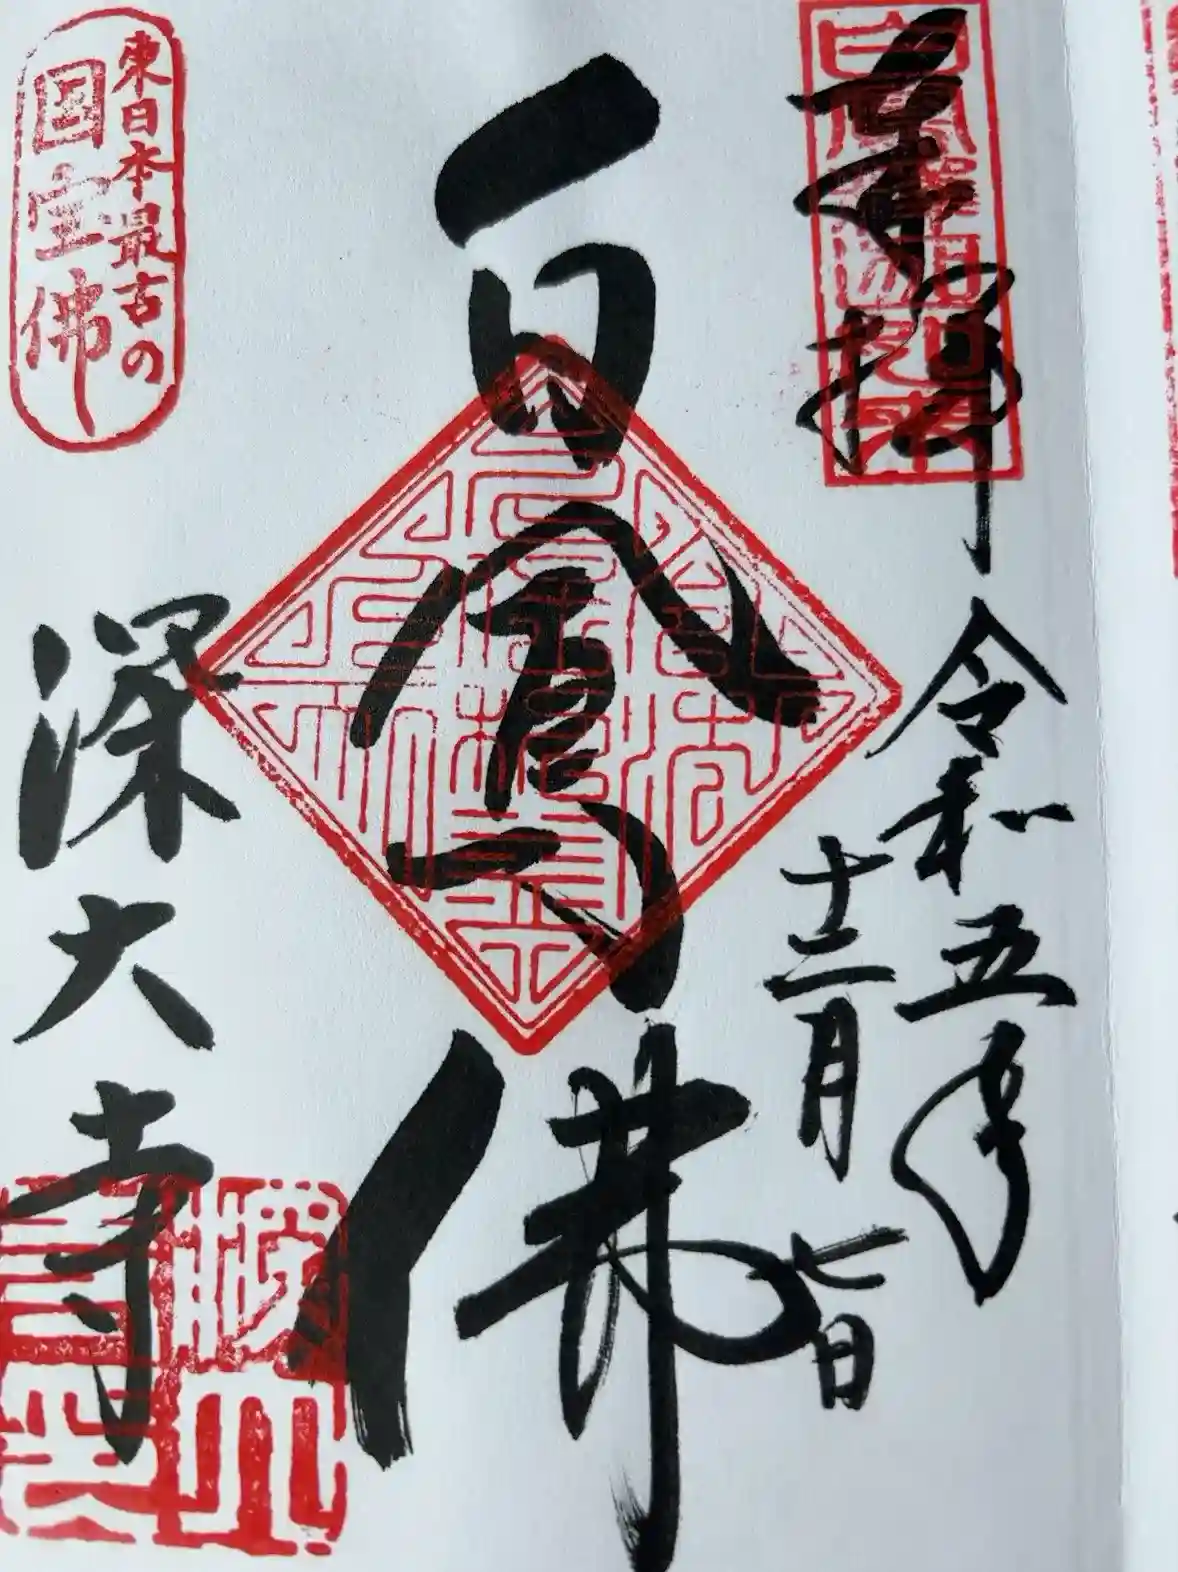 奉拝
令和五年
十二月七日
白鳳佛
東日本最古の
国宝佛
深大寺
深大
寺印